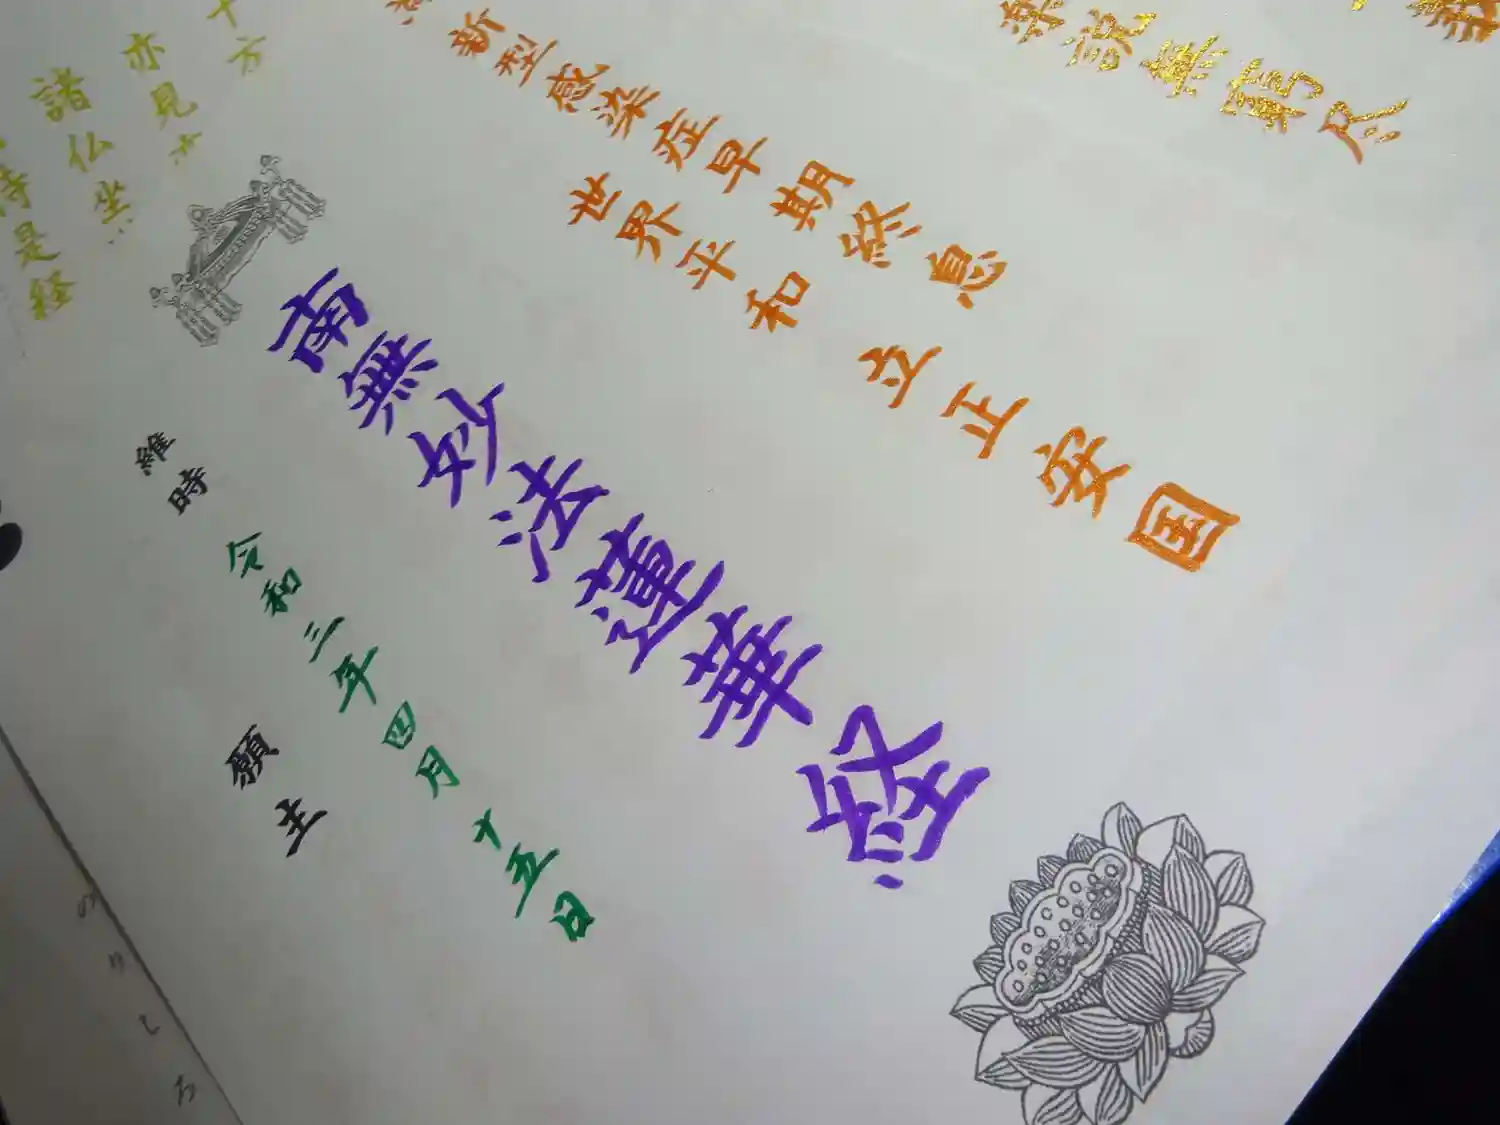 楽説無窮尽
新型感染症早期終息
世界平和 立正安国
南無妙法蓮華経
維時 令和三年四月十五日
願主
十方
亦見
諸仏坐
持是経